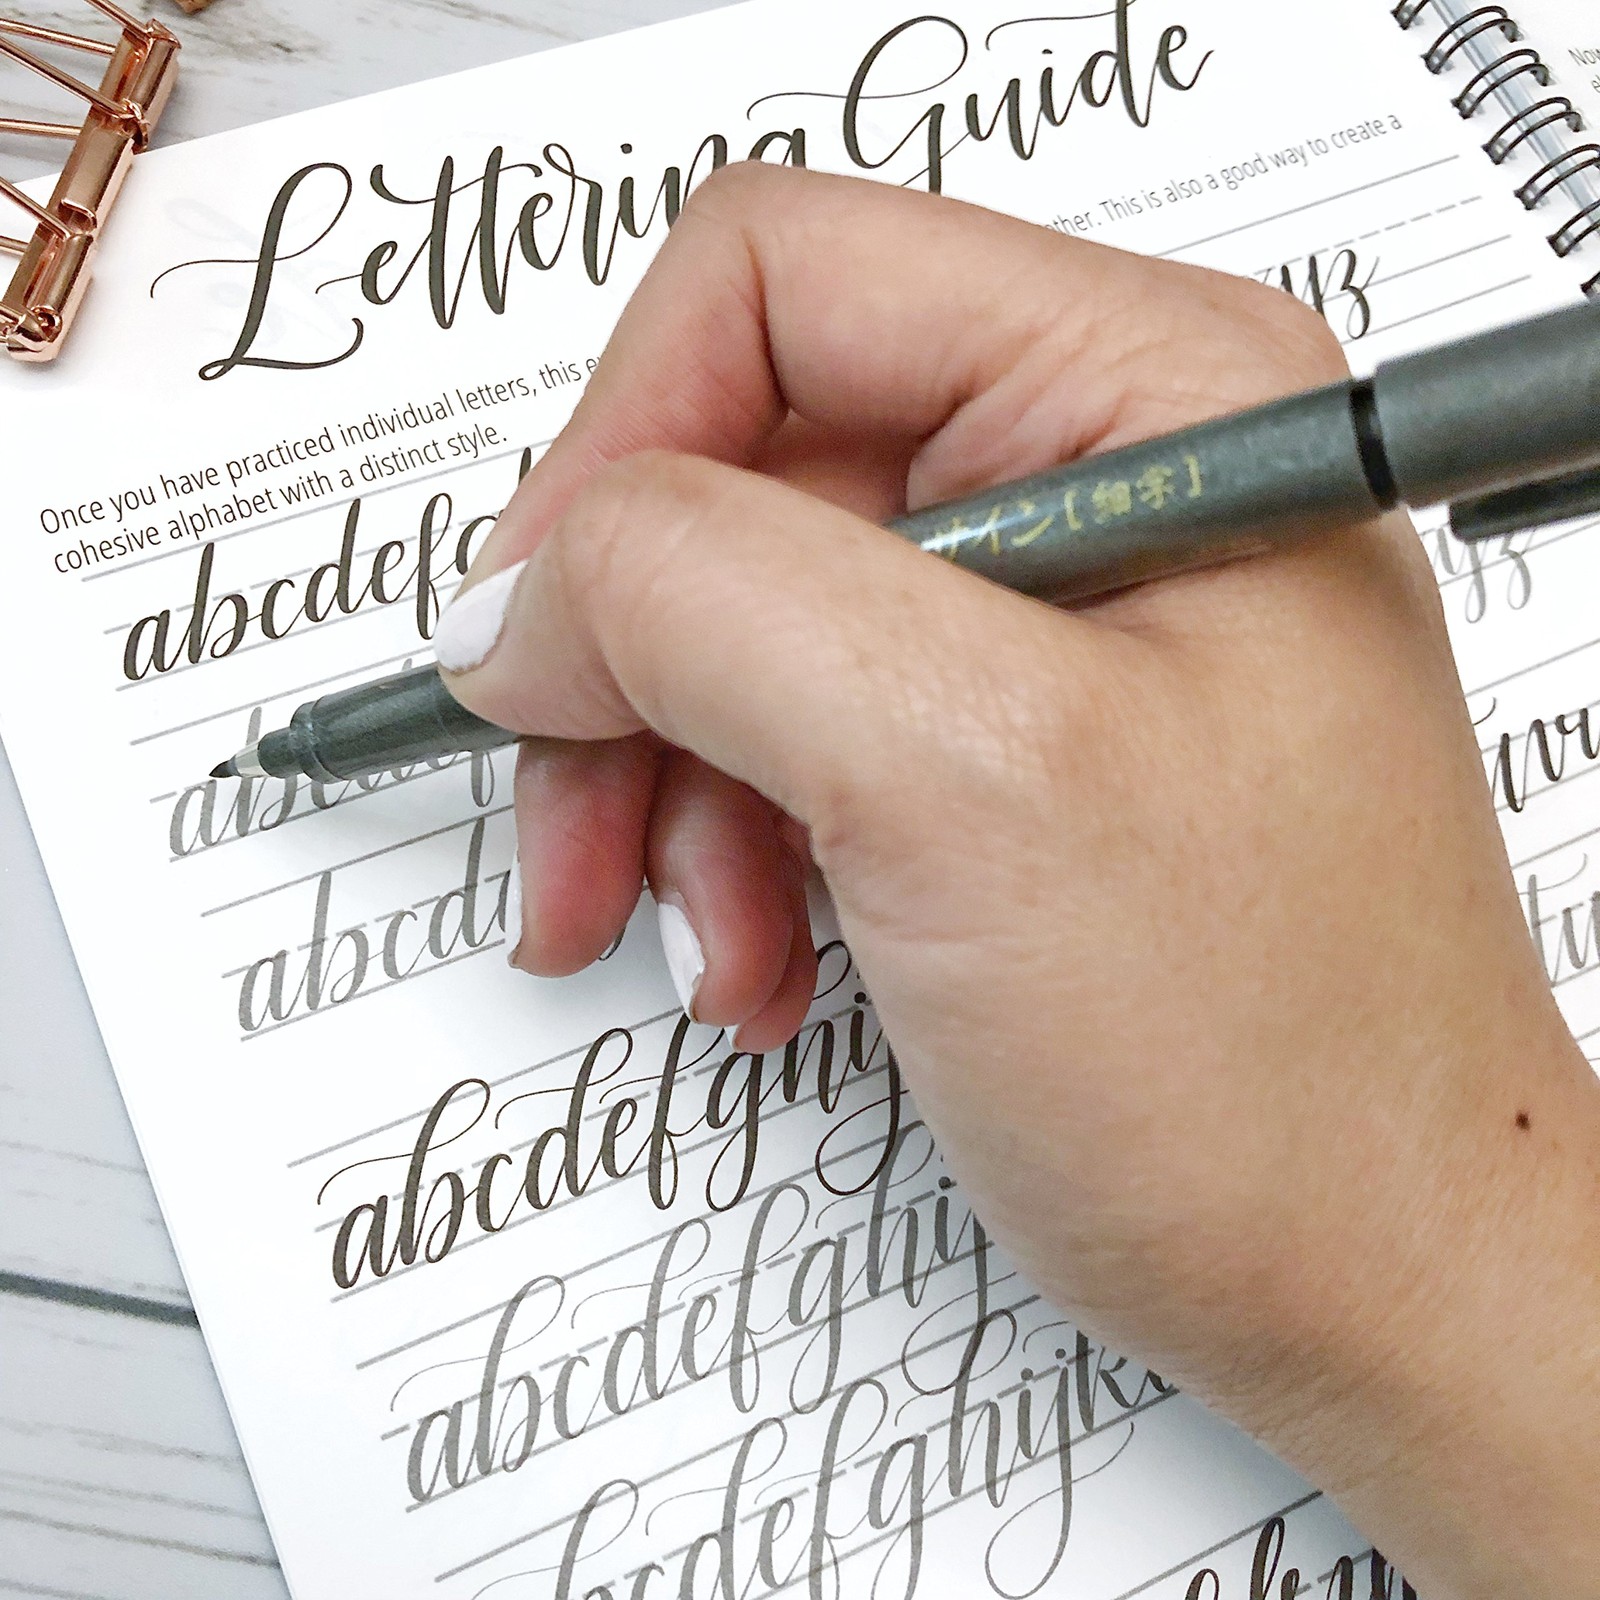 Lettering Guide
Once you have practiced individual letters, this other. This is also a good way to create a
cohesive alphabet with a distinct style.
abcdef yz
サイン [細字]
abcdef yz
abcd
abcdefghij
abcdefghij
bcdefghijk